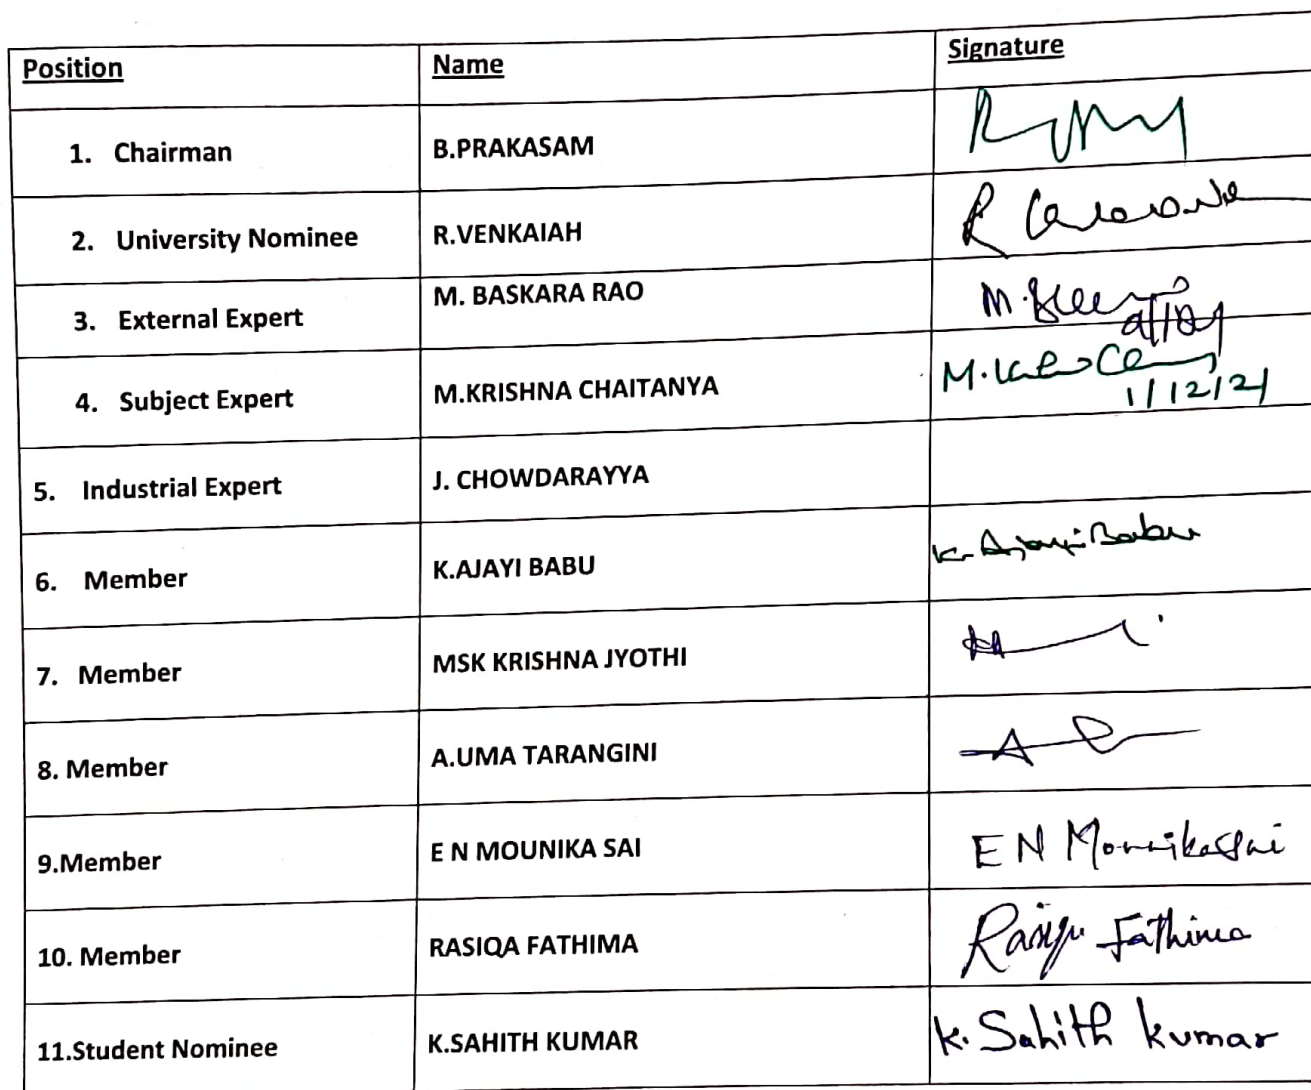 Position Name Signature
1. Chairman B.PRAKASAM
2. University Nominee R.VENKAIAH
3. External Expert M. BASKARA RAO
4. Subject Expert M.KRISHNA CHAITANYA
1/12/21
5. Industrial Expert J. CHOWDARAYYA
6. Member K.AJAYI BABU K. Ajayi Babu
7. Member MSK KRISHNA JYOTHI
8. Member A.UMA TARANGINI
9.Member E N MOUNIKA SAI E N Mounika Sai
10. Member RASIQA FATHIMA Rasiqa Fathima
11.Student Nominee K.SAHITH KUMAR K. Sahith kumar